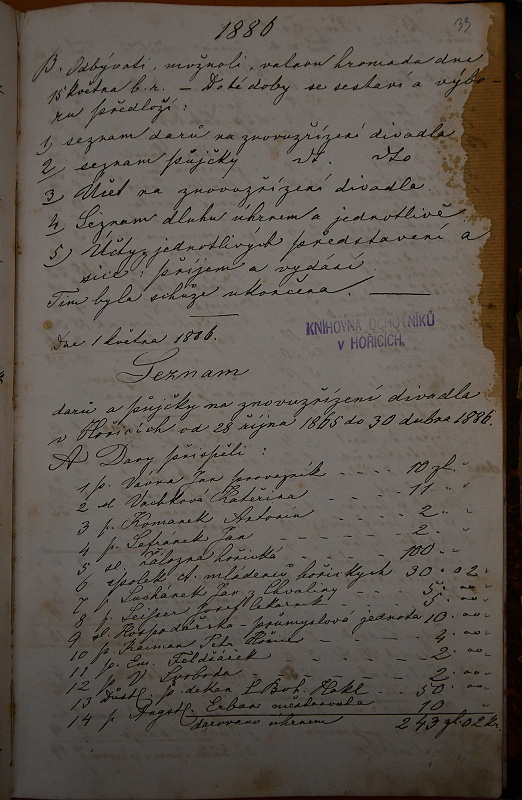 1886
33
B. Odbývati, možnoli, valnou hromadu dne
15 května b.r. — Do té doby se sestaví a výbo-
ru předloží:
1, seznam darů na znovuzřízení divadla
2, seznam půjčky dt. dto
3, Účet na znovuzřízení divadla.
4, Seznam dluhu úhrnem a jednotlivě
5, Účty jednotlivých představení a
sice: příjem a vydání
Tím byla schůze ukončena.
Dne 1 května 1886.
KNIHOVNA OCHOTNÍKŮ
v HOŘICÍCH.
Seznam
darů a půjčky na znovuzřízení divadla
v Hořicích od 28 října 1865 do 30 dubna 1886.
A Dary přispěli:
1 p. Vávra Jan - - - 10 zl.
2 sl. Kateřina - - - 11 "
3 p. Romanek Antonín - - - 2 "
4 p. Šefranek Jan - - - 2 "
5 sl. Záložna hořická - - - 100 "
6 spolek mládenců hořických 30 02
7 p. Jan z Chvaliny - - 5 "
8 p. Josef lékárník - - 5 "
9 sl. Hospodářsko-průmyslová jednota 10 "
10 p. Raiman Petr Hořice - - - 4 "
11 p. Em. - - - 2 "
12 p. V. Svoboda - - - 2 "
13 Důstj. p. děkan Boh. Hakl - - 50 "
14 p. August Erban - - 10 "
darováno úhrnem 243 zl 02 kr.